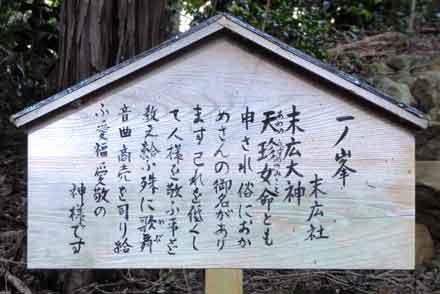 一ノ峯
末広社
末広大神
天珍女命とも
申され俗におか
めさんの御名があり
ます己れを低くし
て人様を敬ふ事を
教え給ふ殊に歌舞
音曲商売を司り給
ふ愛福愛敬の
神様です